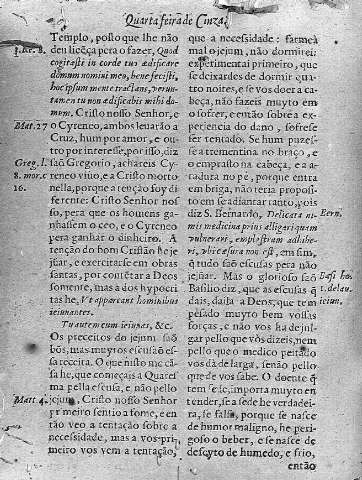 Quarta feira de Cinza.
Templo, posto que lhe não
deu licẽça pera o fazer, Quod
3. Re. 8.
cogitasti in corde tuo ædificare
domum nomini meo, bene fecisti,
hoc ipsum mente tractans, verun-
tamen tu non ædificabis mihi do-
mum. Cristo nosso Senhor, e
o Cyreneo, ambos leuarão a
Mat. 27
Cruz, hum por amor, e ou-
tro por interesse, por isso, diz
são Gregorio, achareis Cy-
Greg. l.
reneo viuo, e a Cristo morto
8. mor. c
nella, porque a tenção foy di
16.
ferente: Cristo Senhor nos-
so, pera que os homens ga-
nhassem o ceo, e o Cyreneo
pera ganhar o dinheiro. A
tenção do bom Cristão he je
jũar, e exercitarse em obras
santas, por contẽtar a Deos
somente, mas a dos hypocri
tas he, Vt appareant hominibus
ieiunantes.
Tu autem cum ieiunes, &c.
Os preceitos do jejum são
bõs, mas muytos escusaõ es-
sa receita. O que nisto me cã-
sa he, que começais a Quares
ma pella escusa, e não pello
jejum, Cristo nosso Senhor
Matt. 4.
primeiro sentio a fome, e en
tão veo a tentação sobre a
necessidade, mas a vos pri-
meiro vos vem a tentação,
que a necessidade: farmeà
mal o jejum, não dormirei:
experimentai primeiro, que
se deixardes de dormir qua-
tro noites, e se vos doer a ca-
beça, não fazeis muyto em
o sofrer, e então sobre a ex-
periencia do dano, sofrese
ser tentado. Se hum puzes-
se a trementina no braço, e
o emprasto na cabeça, e a a-
radura no pè, porque entra
em briga, não teria proposi-
to em se adiantar tanto, pois
diz S. Bernardo, Delicata ni-
Bern.
mis medicina prius alligari quam
vulnerari, emplastrum adhibe-
re, vbi cæsura non est, em sim,
q̃ tudo são escusas pera não
jejũar. Mas o glorioso saõ
Basilio diz, que as escusas q̃
dais, daila a Deos, que tem
pesado muyto bem vossas
forças, e não vos ha de jul-
gar pello que vòs dizeis, nem
pello que o medico peitado
vos dà de larga, senão pello
que de vòs sabe. O doente q̃
tem sede, importa muyto en
tender, se a sede he verdadei-
ra, se falsa, porque se nasce
de humor maligno, he peri-
goso o beber, e se nasce de
descyto de humedo, e frio,
então